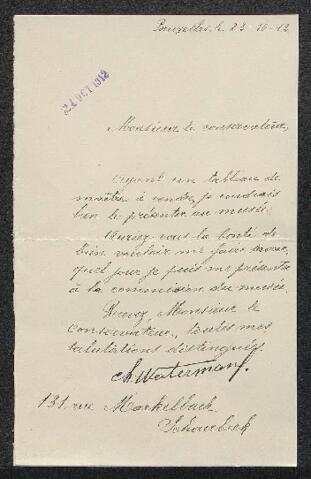 Bruxelles, le 23-10-12
24 OCT 1912
Monsieur le conservateur,
Ayant un tableau de
maître à vendre, je voudrais
bien le présenter au musée.
Auriez-vous la bonté de
bien vouloir me faire savoir,
quel jour je puis me présenter
à la commission du musée.
Recevez, Monsieur le
conservateur, toutes mes
salutations distinguées.
Ch. Watermans.
131, rue Markelbach
Schaerbeek